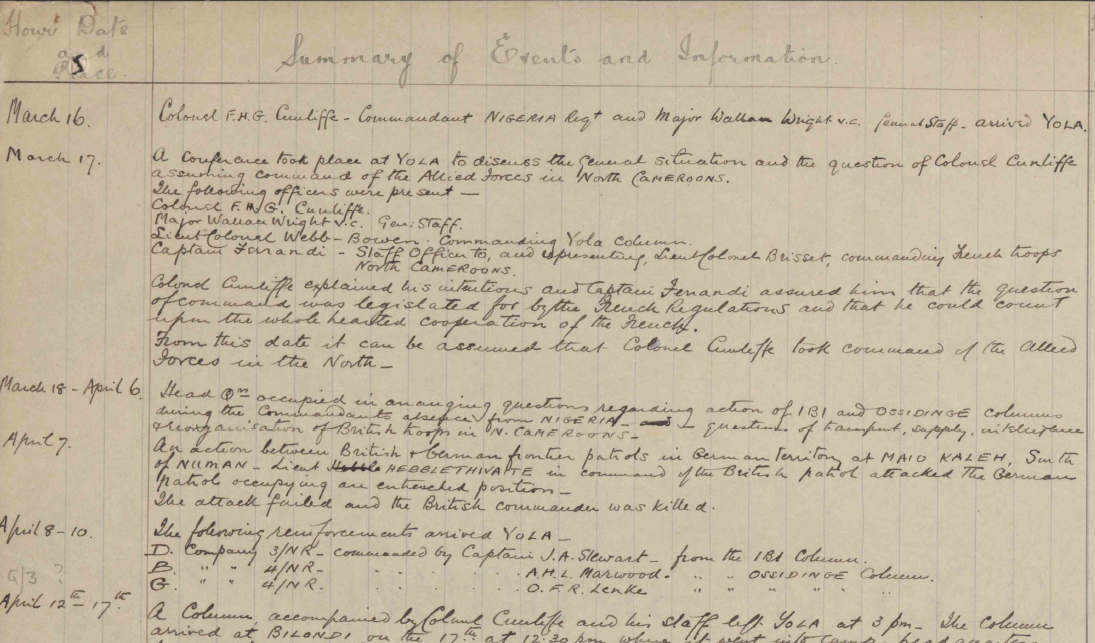 Hour Date
and
Place.
5
Summary of Events and Information.
March 16. Colonel F.H.G. Cunliffe - Commandant NIGERIA Regt and Major Wallace Wright V.C. General Staff - arrived YOLA.
March 17. A Conference took place at YOLA to discuss the general situation and the question of Colonel Cunliffe
assuming command of the Allied Forces in North CAMEROONS.
The following officers were present —
Colonel F.H.G. Cunliffe.
Major Wallace Wright V.C. Gen: Staff.
Lieut Colonel Webb-Bowen. Commanding Yola Column.
Captain Ferrandi - Staff Officer to, and representing, Lieut Colonel Brisset, commanding French troops
North CAMEROONS.
Colonel Cunliffe explained his intentions and Captain Ferrandi assured him that the question
of command was legislated for by the French Regulations and that he could count
upon the whole hearted cooperation of the French.
From this date it can be assumed that Colonel Cunliffe took command of the Allied
Forces in the North —
March 18 - April 6. Head Qrs occupied in arranging questions regarding action of IBI and OSSIDINGE columns
during the Commandants absence from NIGERIA - and - questions of transport, supply, intelligence
& reorganisation of British troops in N. CAMEROONS -
April 7. An action between British & German frontier patrols in German territory at MAIO KALEH, South
of NUMAN - Lieut Hebble HEBBLETHWAITE in command of the British patrol attacked the German
patrol occupying an entrenched position —
The attack failed and the British commander was killed.
April 8-10. The following reinforcements arrived YOLA —
D. Company 3/NR - commanded by Captain J.A. Stewart - from the IBI Column.
B. " " 4/NR - . . . . A.H.L. Marwood. " " OSSIDINGE Column.
G/3 ?
G. " " 4/NR. . . . . O.F.R. Lenke " " " "
April 12th - 17th. A Column, accompanied by Colonel Cunliffe and his staff left YOLA at 3 pm. The Column
arrived at BILONDI on the 17th at 12:30 pm where it went into camp,